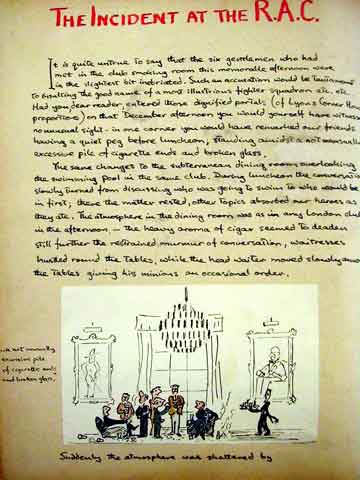 THE INCIDENT AT THE R.A.C.
It is quite untrue to say that the six gentlemen who had
met in the club smoking room this memorable afternoon were
in the slightest bit inebriated. Such an accusation would be
to insulting the good name of a most illustrious fighter squadron etc. etc.
Had you, dear reader, entered those dignified portals (of Lyons Corner
proportions) on that December afternoon you would yourself have
no unusual sight - in one corner you would have remarked our friends
having a quiet peg before luncheon, standing amidst a not unusually
excessive pile of cigarette ends and broken glass.
The scene changes to the subterranean dining room overlooking
the swimming pool in the same club. During luncheon the
slowly turned from discussing who was going to swim to who would be
in first, there the matter rested, other topics absorbed our heroes as
they ate. The atmosphere in the dining room was as in any London club
in the afternoon. - the heavy aroma of cigar seemed to deaden
still further the restrained murmur of conversation, waitresses
hustled round the tables, while the head waiter moved slowly
the tables giving his minions an occasional order.
not unusually
excessive pile
of cigarette ends
and broken glass.
Suddenly the atmosphere was shattered by